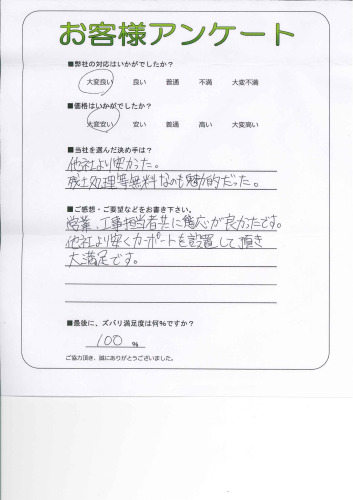 お客様アンケート
■弊社の対応はいかがでしたか？
大変良い 良い 普通 不満 大変不満
■価格はいかがでしたか？
大変安い 安い 普通 高い 大変高い
■当社を選んだ決め手は？
他社より安かった。
残土処理等無料なのも魅力的だった。
■ご感想・ご要望などをお書き下さい。
営業、工事担当者共に対応が良かったです。
他社より安くカーポートを設置して頂き
大満足です。
■最後に、ズバリ満足度は何%ですか？
100 %
ご協力頂き、誠にありがとうございました。